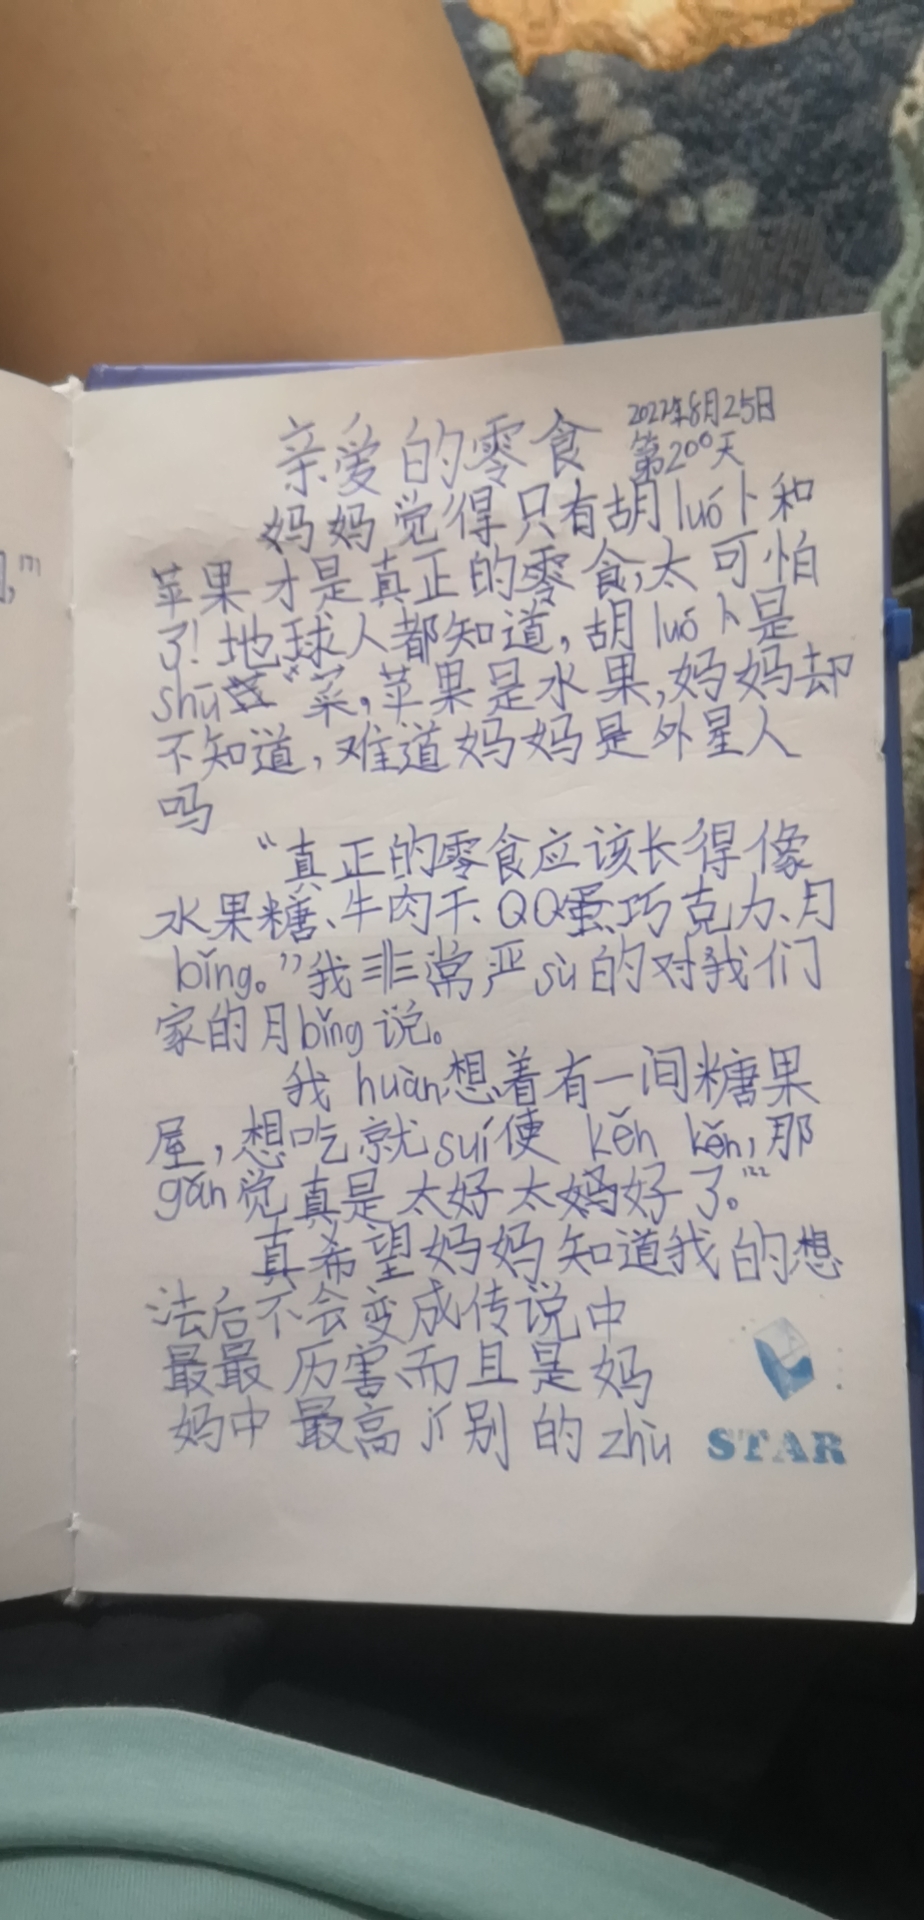 亲爱的零食
2022年8月25日
第200天
妈妈觉得只有胡luó卜和
苹果才是真正的零食,太可怕
了!地球人都知道,胡luó卜是
shū菜,苹果是水果,妈妈却
不知道,难道妈妈是外星人
吗
“真正的零食应该长得像
水果糖、牛肉干、QQ蛋、巧克力、月
bǐng。”我非常严sù的对我们
家的月bǐng说。
我huàn想着有一间糖果
屋,想吃就suí便 kěn kěn,那
gǎn觉真是太好太好了。
真希望妈妈知道我的想
法后不会变成传说中
最最厉害,而且是妈
妈中最高jí别的zhù
STAR